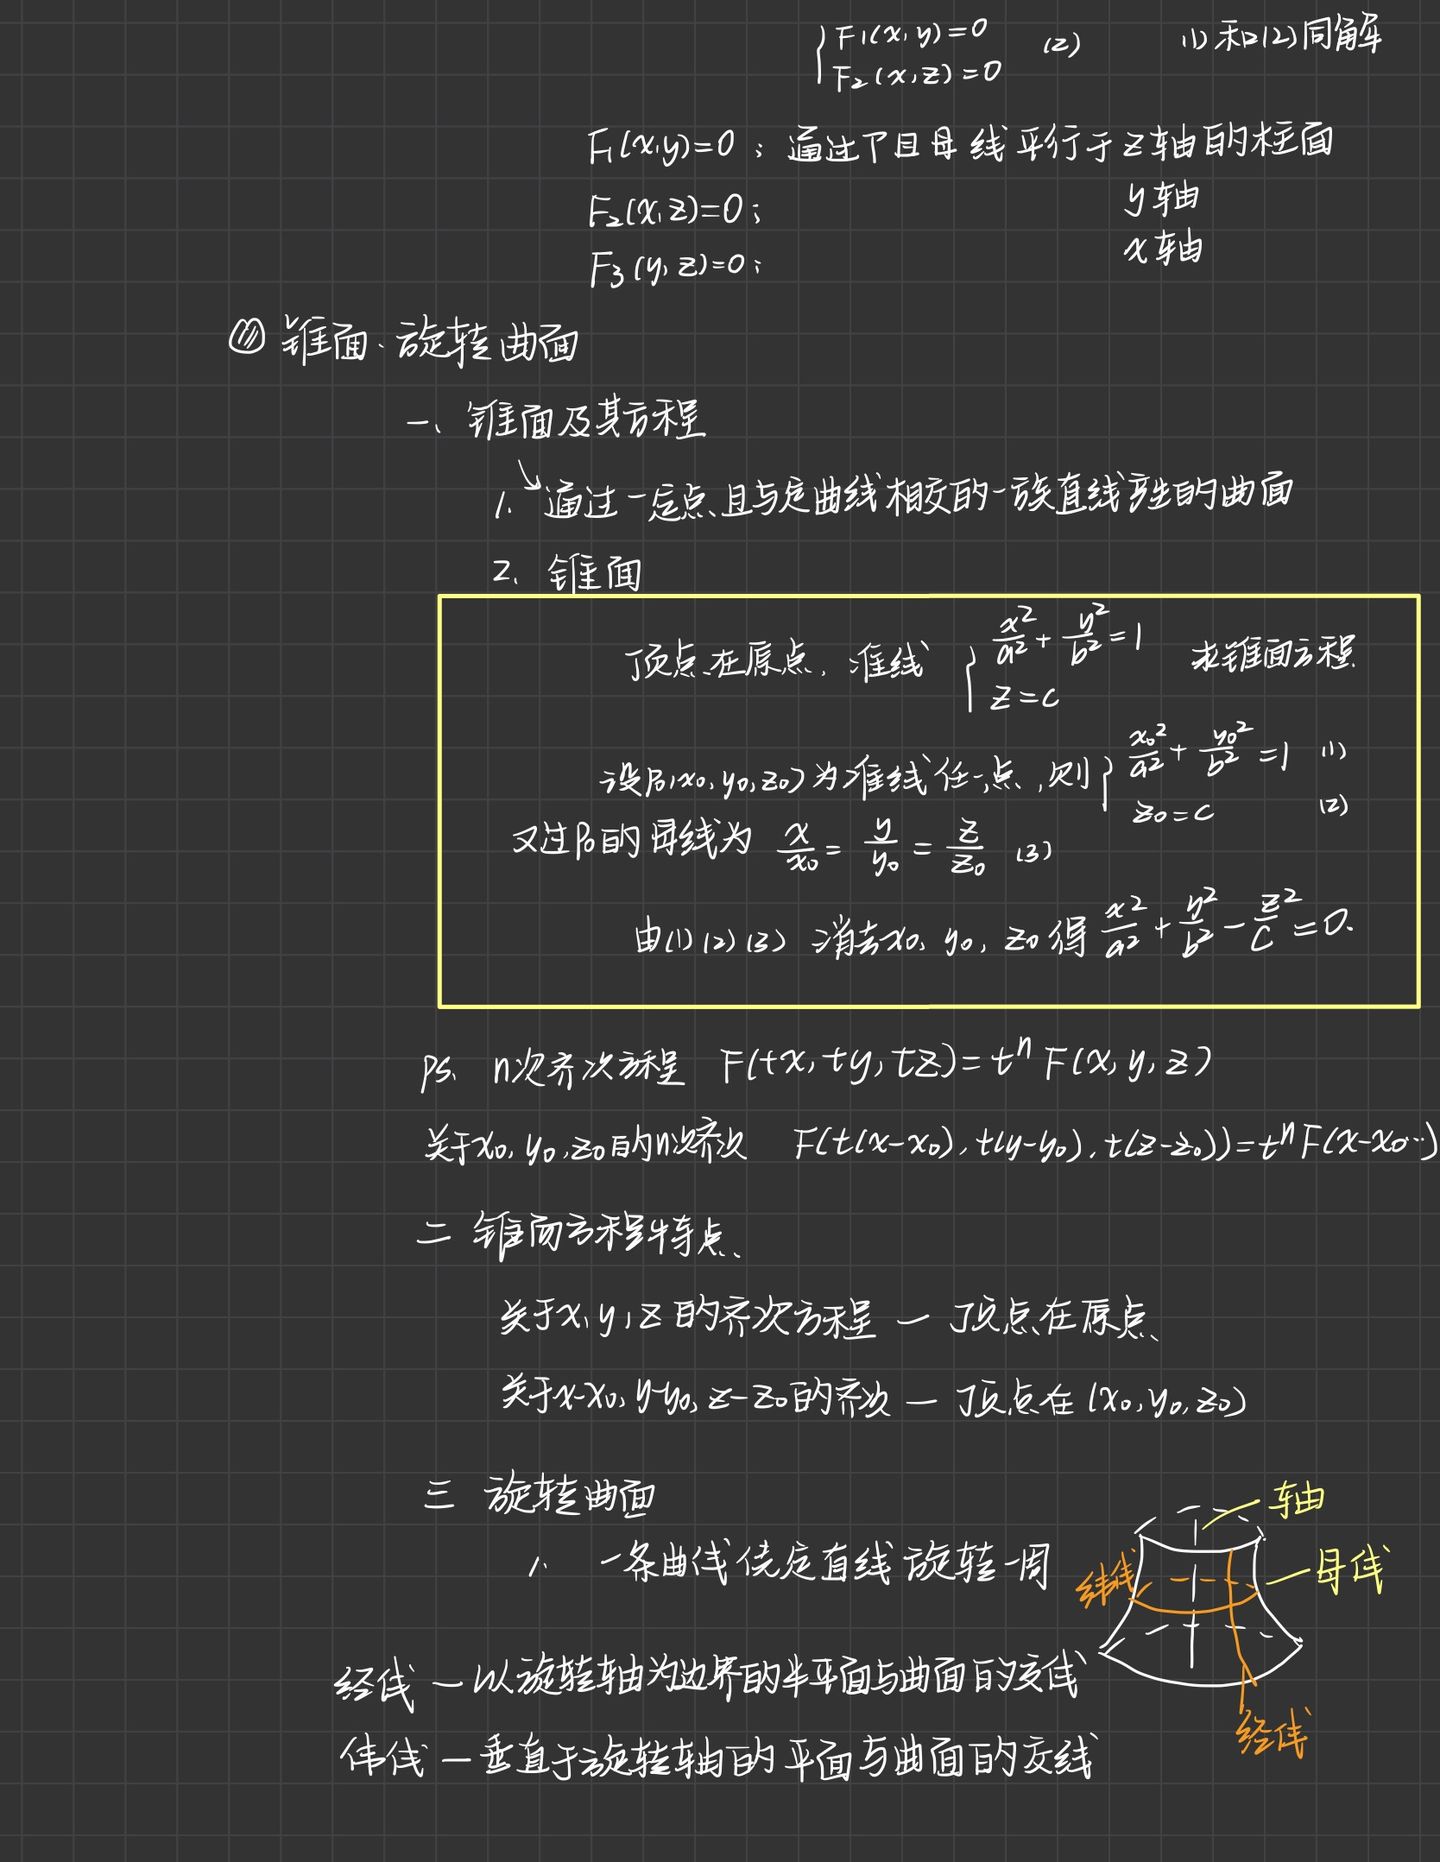 { F₁(x, y)=0 (2) (1)和(2)同解
F₂(x, z)=0
F₁(x,y)=0; 通过Γ且母线平行于z轴的柱面
F₂(x,z)=0; y轴
F₃(y,z)=0; x轴
锥面、旋转曲面
一、锥面及其方程
1. 通过一定点且与定曲线相交的一族直线产生的曲面
2. 锥面
顶点在原点, 准线 { x²/a² + y²/b² = 1 求锥面方程
z=c
设P₀(x₀,y₀,z₀)为准线任一点,则 { x₀²/a² + y₀²/b² = 1 (1)
z₀=c (2)
又过P₀的母线为 x/x₀ = y/y₀ = z/z₀ (3)
由(1)(2)(3) 消去x₀, y₀, z₀得 x²/a² + y²/b² - z²/c = 0.
PS. n次齐次方程 F(tx, ty, tz)=tⁿF(x, y, z)
关于x₀, y₀, z₀的n次齐次 F(t(x-x₀), t(y-y₀), t(z-z₀))=tⁿF(x-x₀…)
二 锥面方程特点
关于x,y,z的齐次方程 — 顶点在原点
关于x-x₀, y-y₀, z-z₀的齐次 — 顶点在(x₀,y₀,z₀)
三 旋转曲面
轴
1. 一条曲线绕定直线旋转一周
母线
纬线
经线 — 以旋转轴为边界的半平面与曲面的交线
经线
伟线 — 垂直于旋转轴的平面与曲面的交线